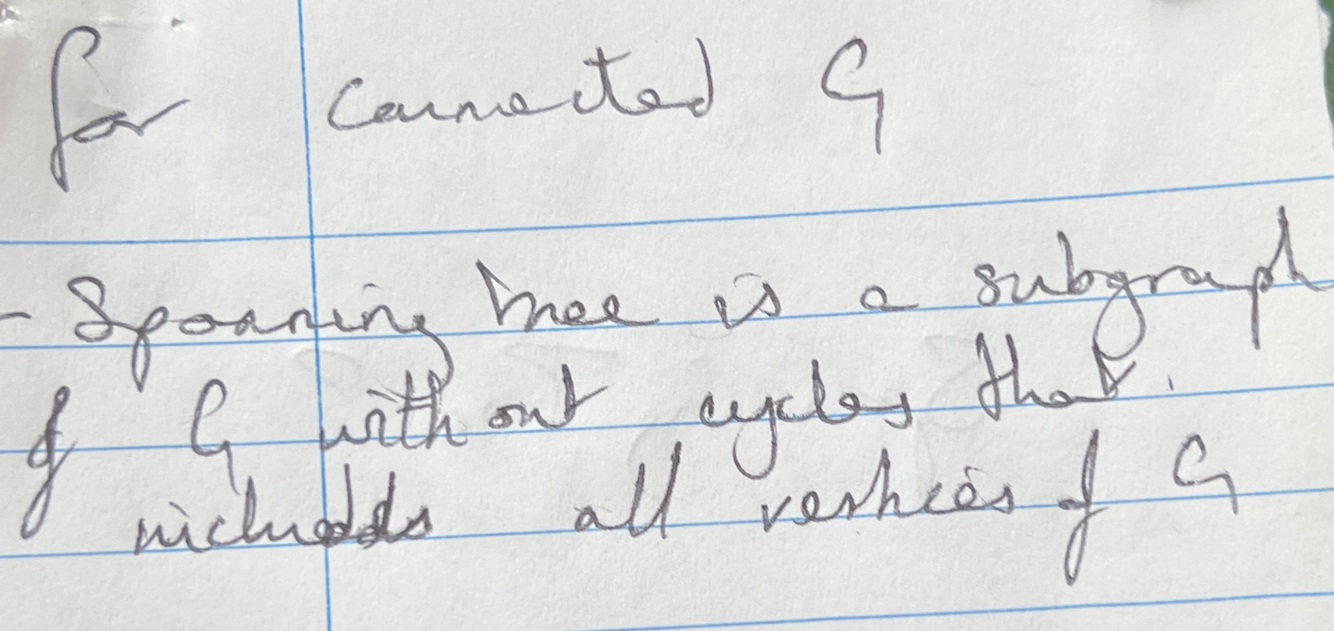 for connected G
- Spanning tree is a subgraph
of G without cycles that
includes all vertices of G